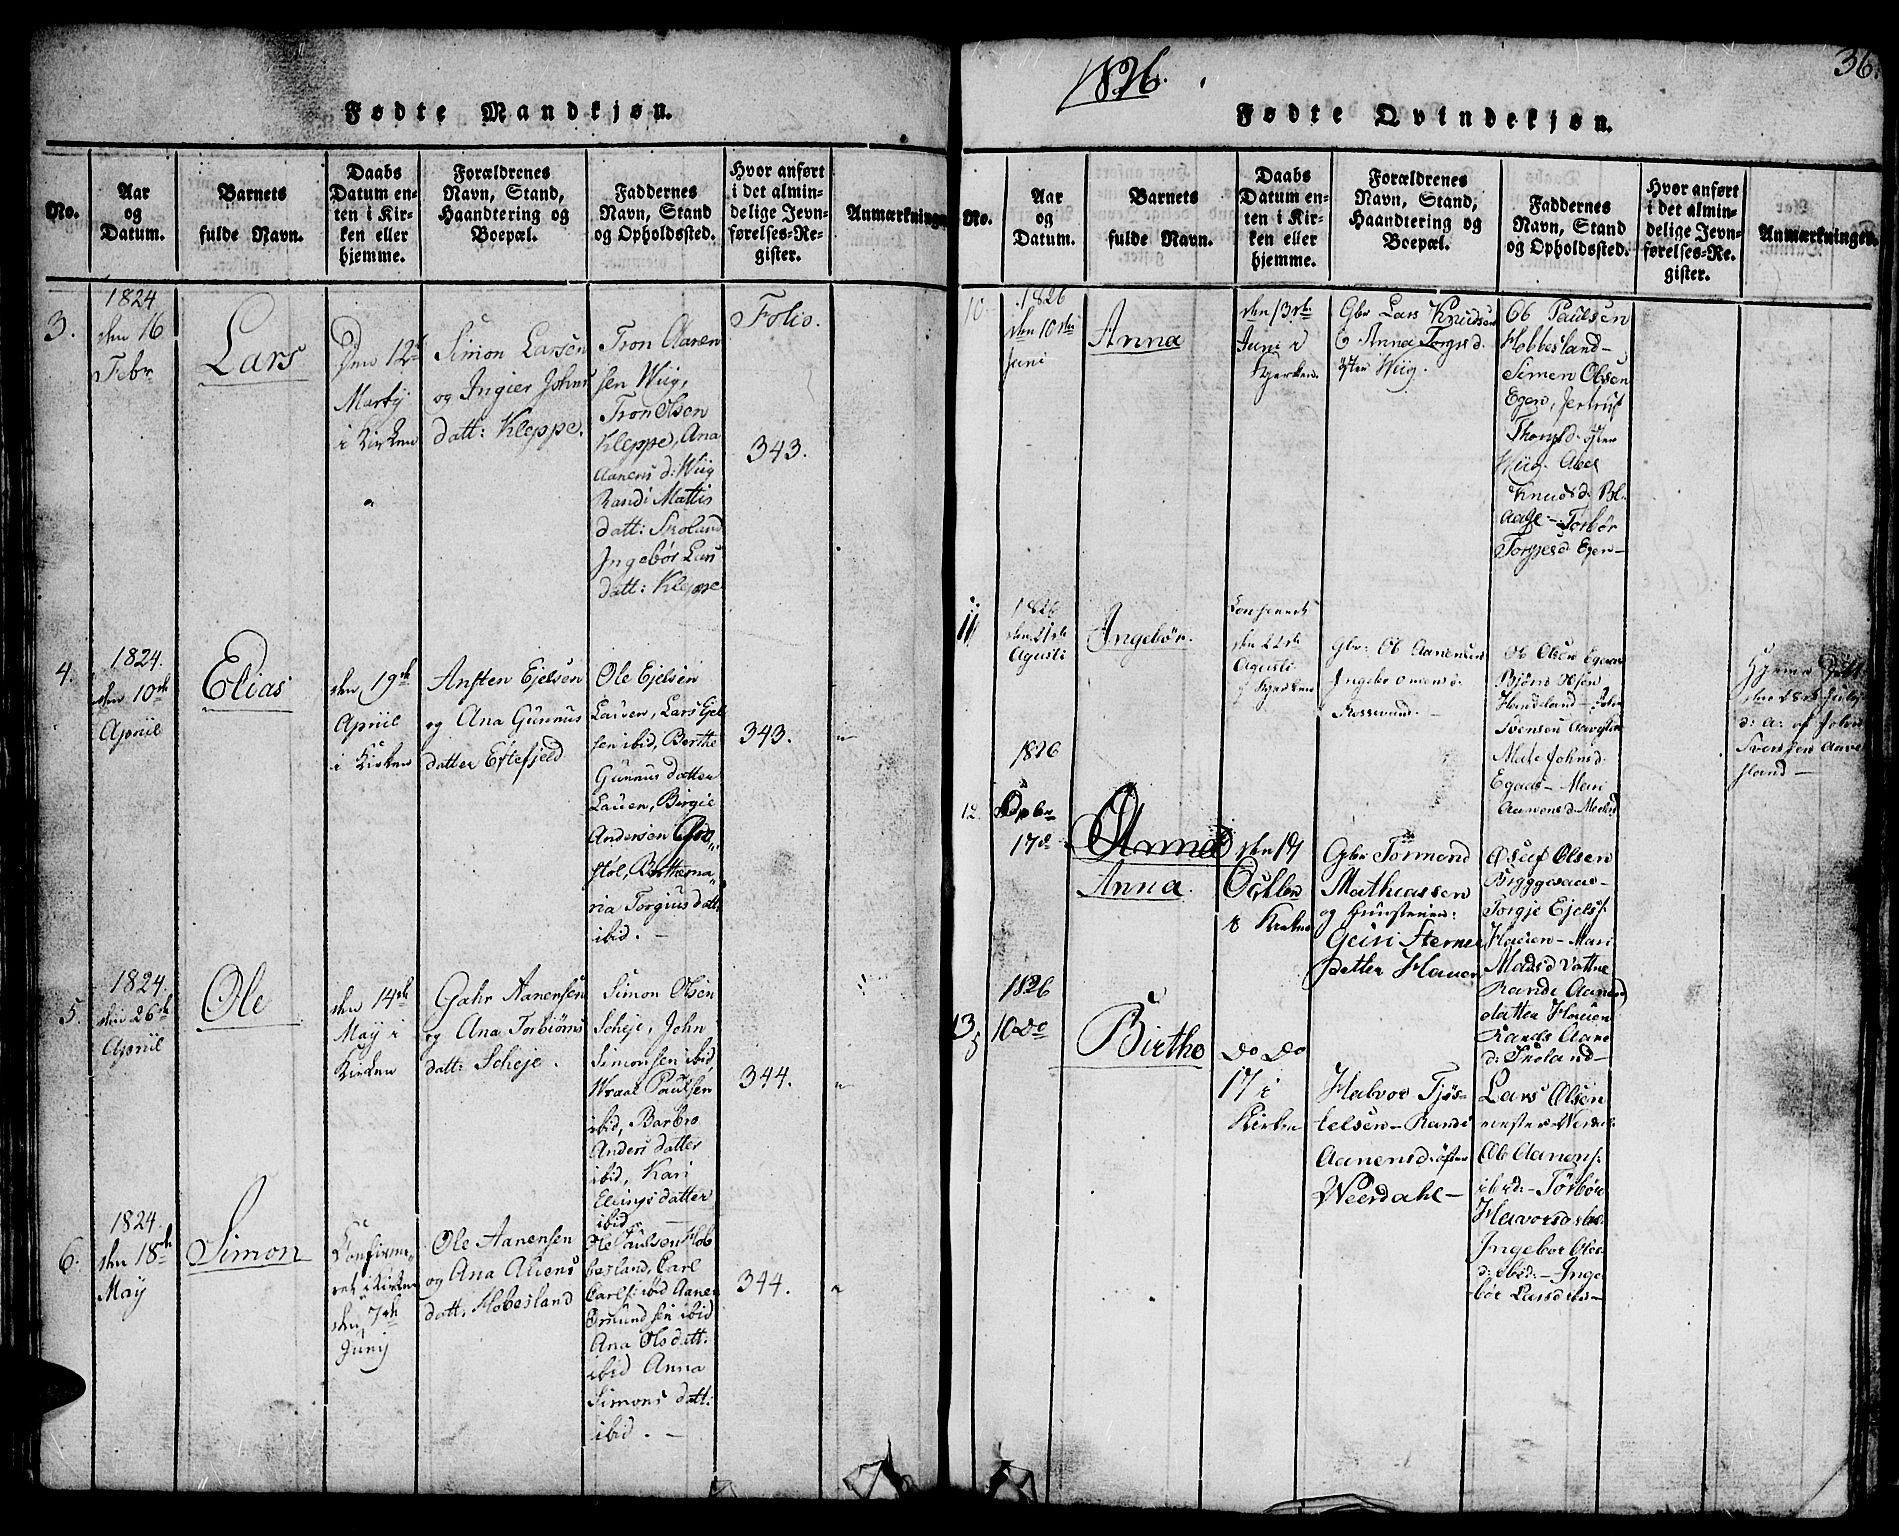 Fødte Mandkjøn.
No.
Aar
og
Datum.
Barnets
fulde Navn.
Daabs
Datum en-
ten i Kir-
ken eller
hjemme.
Forældrenes
Navn, Stand,
Haandtering og
Boepæl.
Faddernes
Navn, Stand
og Opholdssted.
Hvor anført
i det almin-
delige Jevn-
førelses-Re-
gister.
Anmærkninger
3.
1824
den 16
Febr
Lars
Den 12te
Martij
i Kirken
Simon Larsen
og Ingier Johns
datt: Kleppe.
Tron Aanen
sen Wiig,
Tron Olsen
Kleppe, Ana
Aanens d: Wiig
Randi Mattis
datt: Skoland
Ingebór Lars
datt: Kleppe
Folio.
343.
4.
1824.
den 10de
Apriil
Elias
den 19de
Apriil
i Kirken
Ansten Ejelsen
og Ana Gunnus
datter Eftefjeld
Ole Ejelsen
Lauen, Lars Ejel
sen ibid, Berthe
Gunnus datter
Lauen, Birgie
Andersen
støl, Berthema
ria Torgius datt:
ibid. —
343.
5.
1824.
den 26de
Apriil
Ole
den 14de
May i
Kirken
Gahr Aanensen
og Ana Torbiørns
datt: Scheje.
Simon Olsen
Scheje, John
Simonsen ibid,
Wraal Paulsen
ibid, Barbro
Anders datter
ibid, Kari
Ellings datter
ibid —
344.
6.
1824.
den 18de
May
Simon
Confirme
ret i Kirken
den 7de
Junij
Ole Aanensen
og Ana Aliens
datt, Hobesland
Ole Paulsen Hob
besland, Carl
Carls: ibid Aanen
Omundsen ibid
Ana Olsdatt:
ibid Anna
Simons datt:
ibid. —
344.
1826.
36.
Fødte Qvindekjøn.
No.
Aar
og
Datum.
Barnets
fulde Navn.
Daabs
Datum en-
ten i Kir-
ken eller
hjemme.
Forældrenes
Navn, Stand,
Haandtering og
Boepæl.
Faddernes
Navn, Stand
og Opholdssted.
Hvor anført
i det almin-
delige Jevn-
førelses-Re-
gister.
Anmærkninger.
10.
1826
den 10de
Juni
Anna
den 13de
Juni i
Kjerken.
Gbr Lars Knudsen
& Anna Torgesd.
øster Wiig.
Ob Paulsen
Hobbesland—
Simen Olsen
Egen, Jertrud
Thorgsd. øster
Wiig. Abel
Knudsd. Bl.
Aage — Torbør
Torgjesd Egen—
11
1826
den 21de
Agusti
Ingebór.
den 22de
Agusti
i Kjerken
Gbr: Ob Aanensen
Rossevand. —
Ob Olsen Egeaas
Bjørn Olsen
Handeland—
Svensen
Johnsd.
Egaas— Mari
Aanensd.
Hjemme Døbt
af John
Svensen
land —
12.
1826
17de
Anna
Anna
den 17
Octbr
i Kirken
Gbr Tormond
Mathiassen
og
Geiri Sterne
datter Hauen
Osuf Olsen
Bryggesaas—
Torgje Ejelss:
Hauen— Mari
Madsd Vatne
Rande Aanens
datter Hauen
Rands Aans
d: Skoland—
13
1826
10 Do
Birthe
Do Do
17 i
Kirken
Halvor Tjøs-
telsen— Randi
Aanensd. øster
Weerdahl—
Lars Olsen
Ob Aanens:
ibid:— Törbör
Havorsd ibs:
Ingebor Oles
d: ibid:— Inge
bór Larsd ibs—